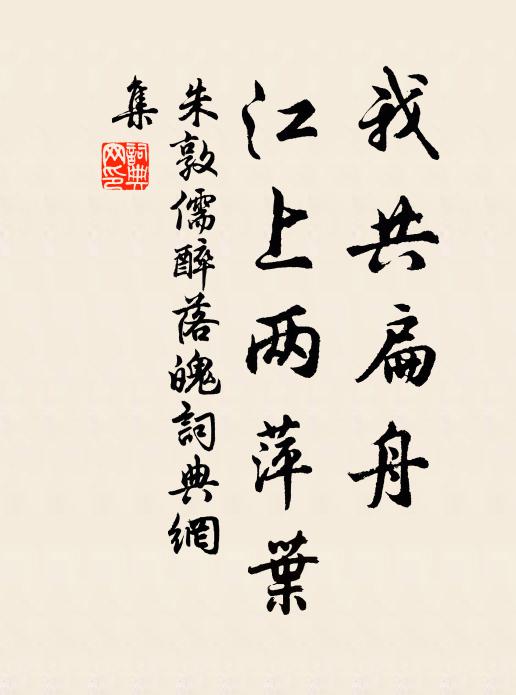 我共扁舟
江上两萍葉
朱敦儒醉落魄詞典網
集
詞典网印